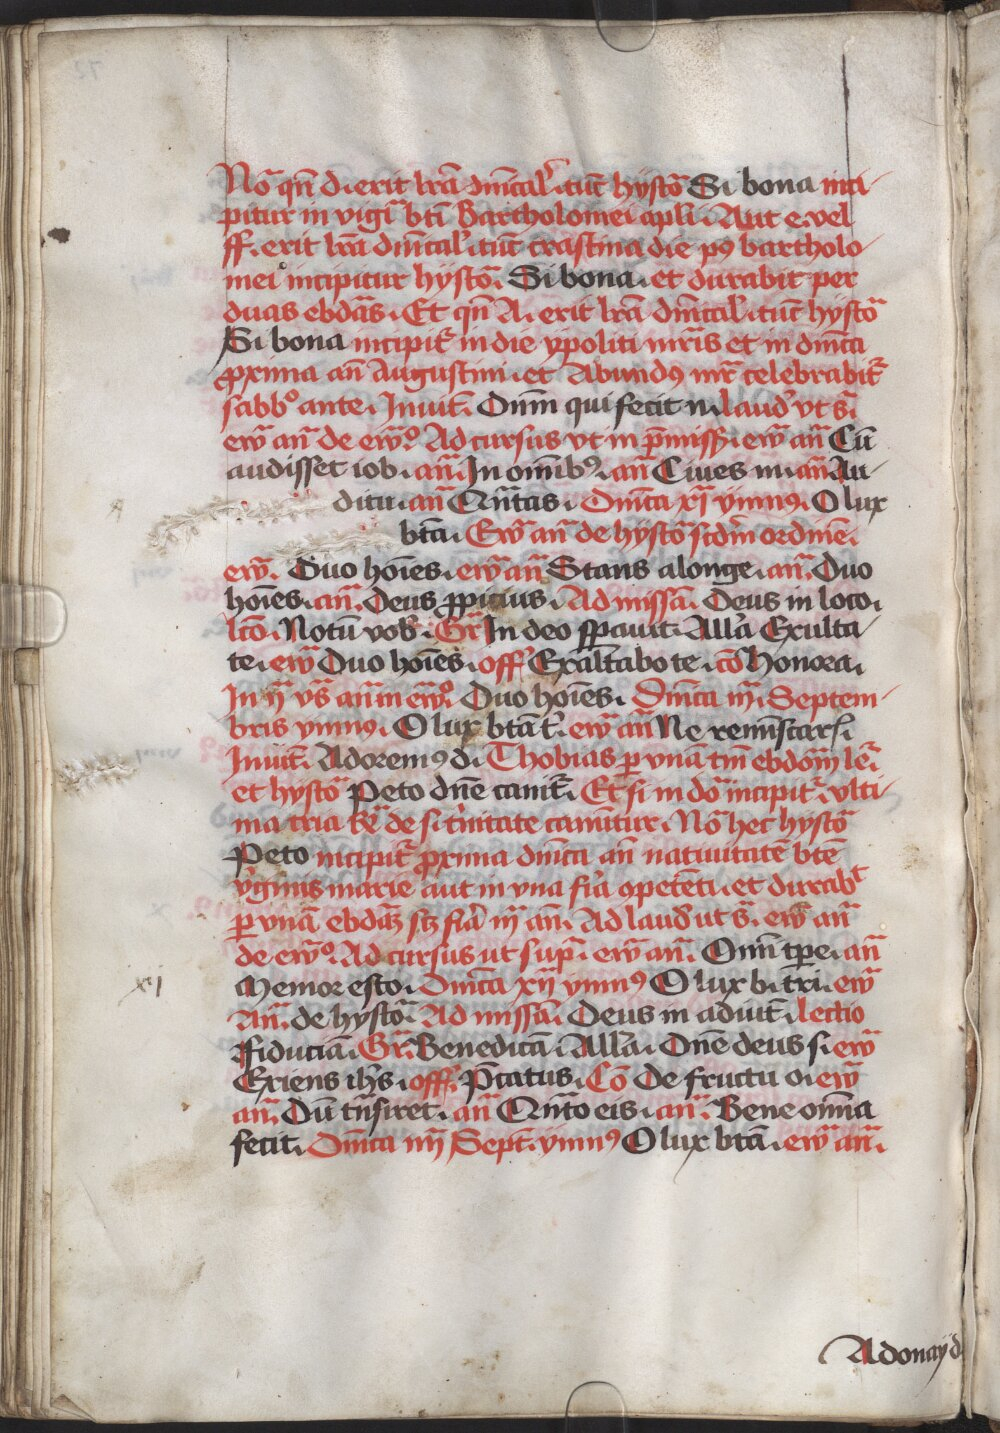 Nō qn̄ d. erit lrā dnīcal' tūc hystō Si bona inci
pitur in vigī btī Bartholomei apli. Aut e. vel
ff. erit lrā dnīcal' tūc crastina die pꝰ bartholo
mei incipitur hystō. Si bona. et durabit per
duas ebdās. Et qn̄ A. erit lrā dnīcal' tūc hystō
Si bona incipit᷑ in die ypoliti mr̄is et in dnīca
ꝓxima an̄ Augustini. et Abundꝯ mr̄ celebrabit᷑
sabbᵒ ante. Inuit. Dn̄m qui fecit n. laud' vt s.
ew̄ an̄ de ew̄ᵒ. Ad cursus vt in p̄miss. ew̄ an̄ Cū
audisset iob. an̄. In omībꝯ. an̄ Ciues mi. an̄ Au
ditu. an̄ Qn̄tas. Dnīca xi ymnꝯ. O lux
btā. Ew̄ an̄ de hystō scdm ordinē.
ew̄. Duo hoīes. ew̄ an̄ Stans a longe. an̄. Duo
hoīes. an̄. Deus ꝓpicius. Ad missā. Deus in loco.
lcō. Notū vob'. Gr̄ In deo sꝑauit. Allā Exulta
te. ew̄ Duo hoīes. off' Exaltabo te. cō Honora.
In ij vs̄ an̄ in ew̄ᵒ. Duo hoīes. Dnīca iij. Septem
bris ymnꝯ. O lux btā t'. ew̄ an̄ Ne reminīscaris
Inuit. Adoremꝯ d. Thobias ꝑ vnā tm̄ ebdom̄ leḡ
et hystō Peto dn̄e canit᷑. Et si in dō incipit᷑. vlti
ma tria Re de s. t'nitate canūtur. Nō hec hystō
Peto incipit᷑ ꝓxima dnīca an̄ natiuitatē btē
vg̓inis marie aut in vna fi'a ꝯpetēti. et durabᵗ
ꝑ vnā ebdā sꝫ fi'a iij an̄. Ad laud' ut s. ew̄ an̄
de ew̄ᵒ. Ad cursus ut sup̄. ew̄ an̄. Omī tꝑe. an̄
Memor esto. Dnīca xij ymnꝯ O lux b. tri. ew̄
An̄. de hystō. Ad missā. Deus in adiut. lectio
Fiduciā. Gr̄. Benedicā. Allā. Dn̄e deus s. ew̄
Exiens ihs̄. off'. P̄catus. Cō De fructu o. ew̄
an̄. Dū tn̄siret. an̄ Qn̄to eis. an̄. Bene omīa
fecit. Dnīca iiij Sept. ymnꝯ O lux btā. ew̄ an̄.
xij
Adonay d